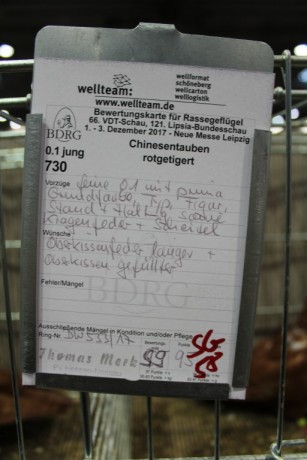 wellteam:
wellformat
schöneberg
wellcarton
welllogistik
www.wellteam.de
Bewertungskarte für Rassegeflügel
66. VDT-Schau, 121. Lipsia-Bundesschau
1. - 3. Dezember 2017 - Neue Messe Leipzig
BDRG
Chinesentauben
rotgetigert
0.1 jung
730
Vorzüge
feine 0.1 mit prima
Grundfarbe, Typ, Figur,
Stand + Haltung sowie
Kragenfeder + Scheitel
Wünsche
Oberkissenfeder länger +
Oberkissen gefüllter
Fehler/Mängel
BDRG
Ausschließende Mängel in Kondition und/oder Pflege
Ring-Nr.
Thomas Merk